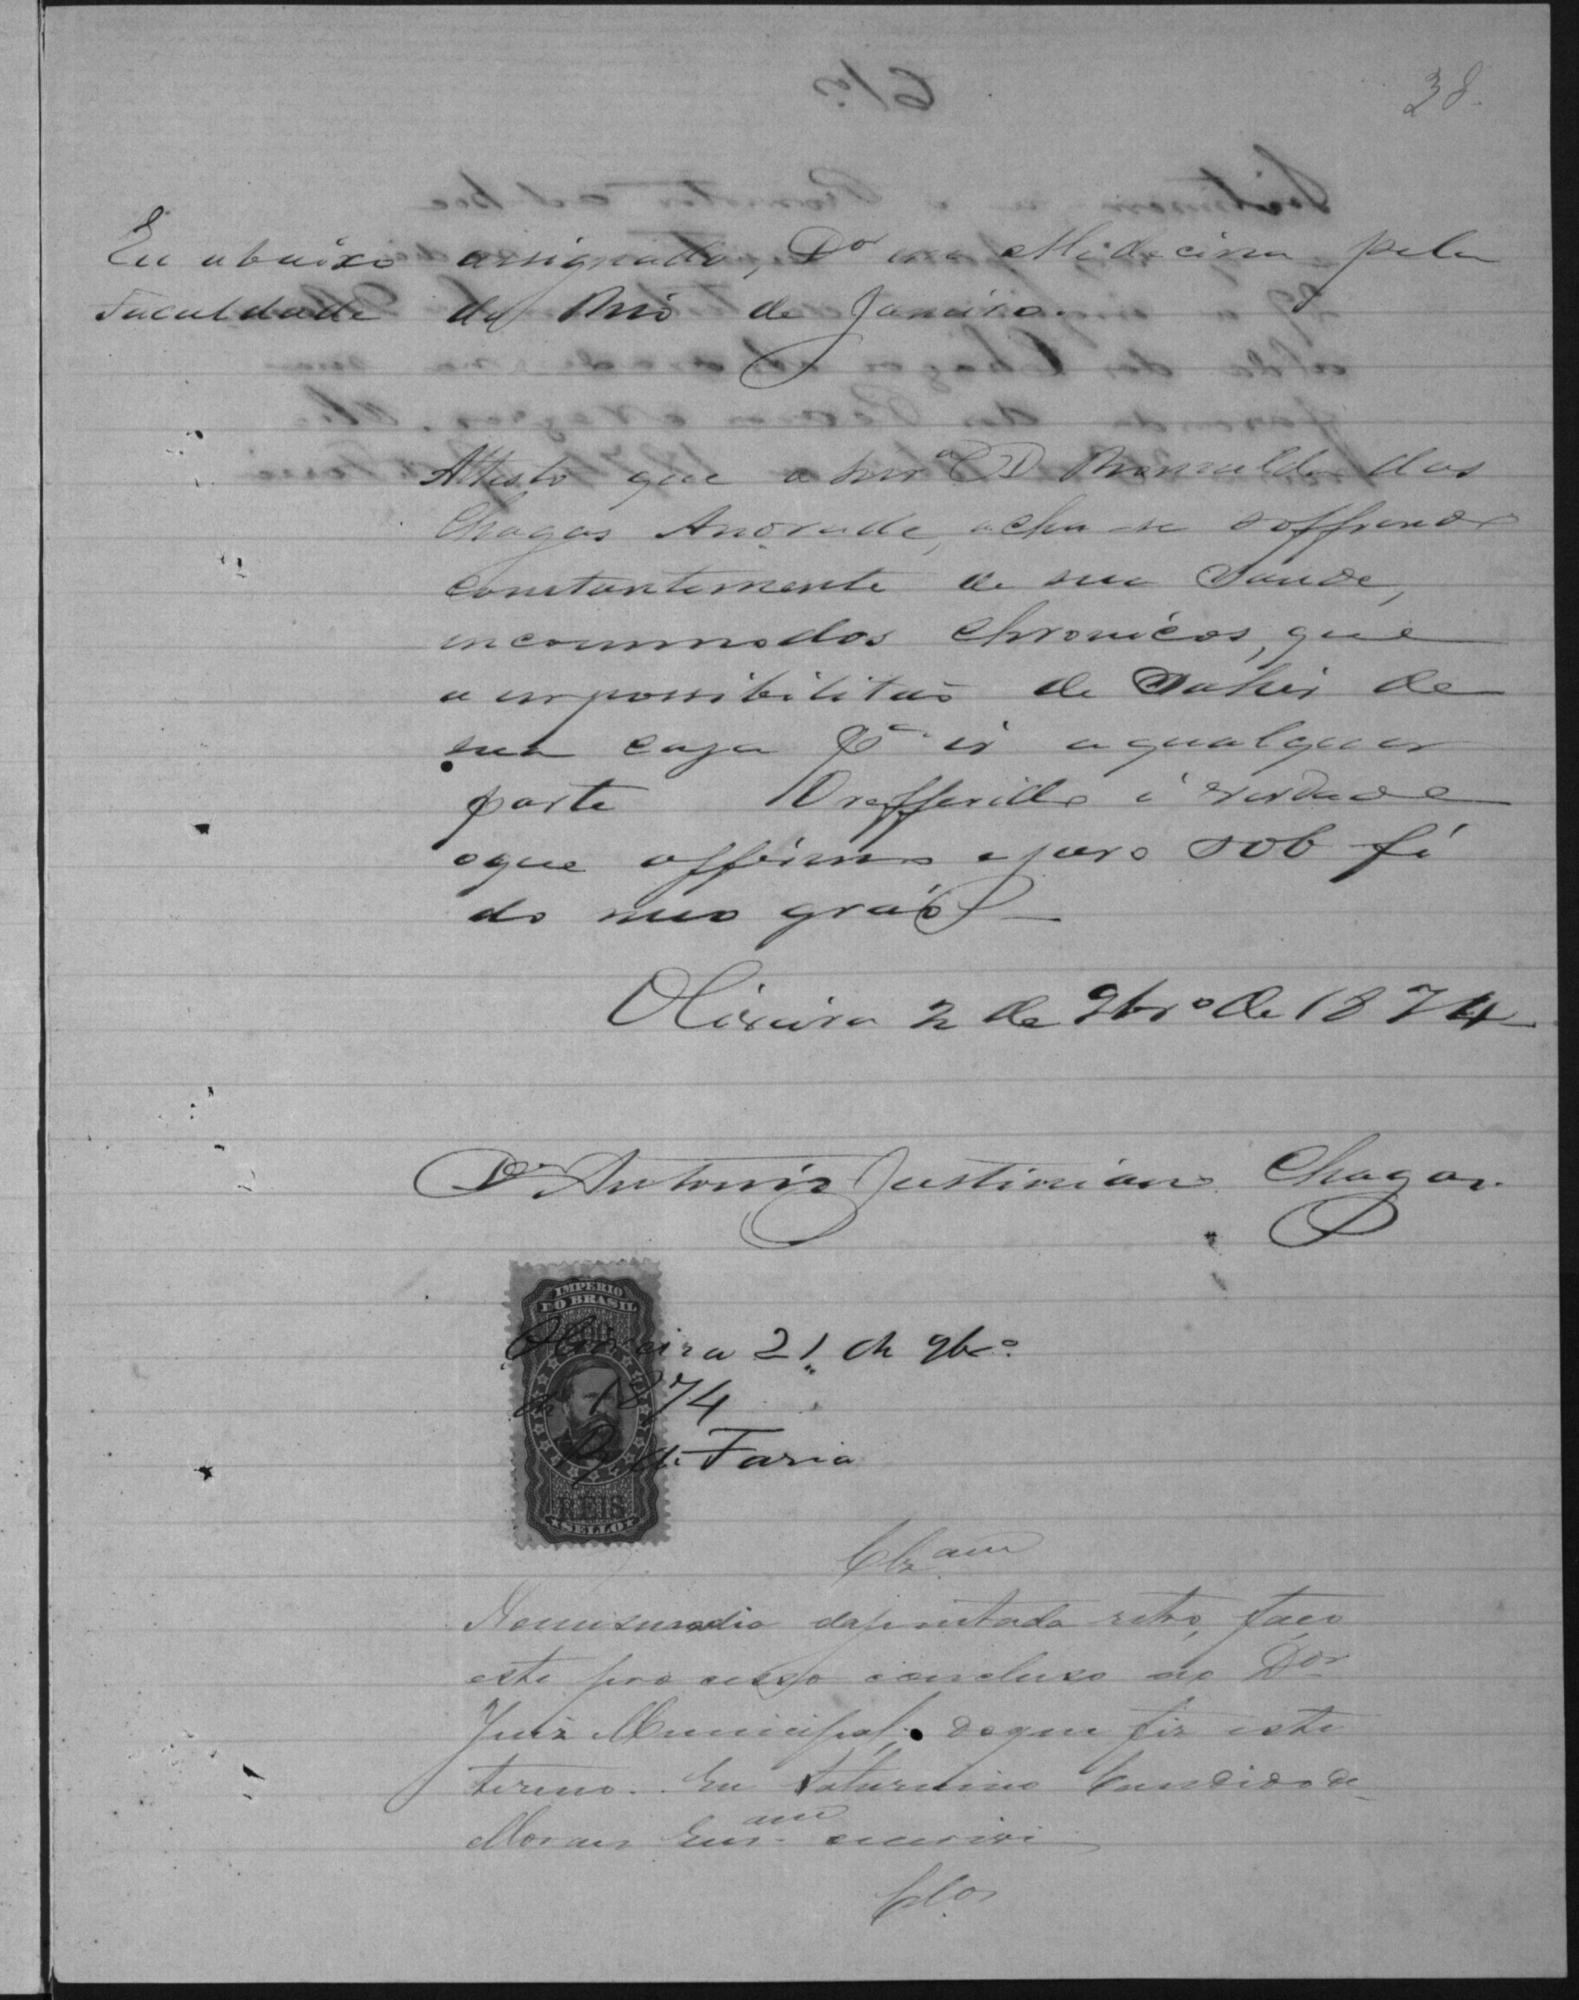 38.
Eu abaixo assignado, Dor em Medicina pela
Faculdade do Rio de Janeiro.
Attesto que a Snrª D Romualda das
Chagas Andrade, acha-se soffrendo
constantemente de sua Saude,
incommodos chronicos, que
a impossibilitaõ de Sahir de
sua casa Pª ir a qualquer
parte O refferido é verdade
oque affirmo e juro sob fé
do meo graó
Oliveira 2 de 9brº de 1874
Dr Antonio Justiniano Chagas.
IMPERIO
DO BRASIL
Oliveira 21 de 9brº
de 1874
de Faria
REIS
SELLO
Clzam
No mesmo dia da juntada retro, faco
este processo concluso ao Dor
Juiz Municipal, do que fiz este
termo. Eu Saturnino Candido de
Moraes Escam escrivi
Clos